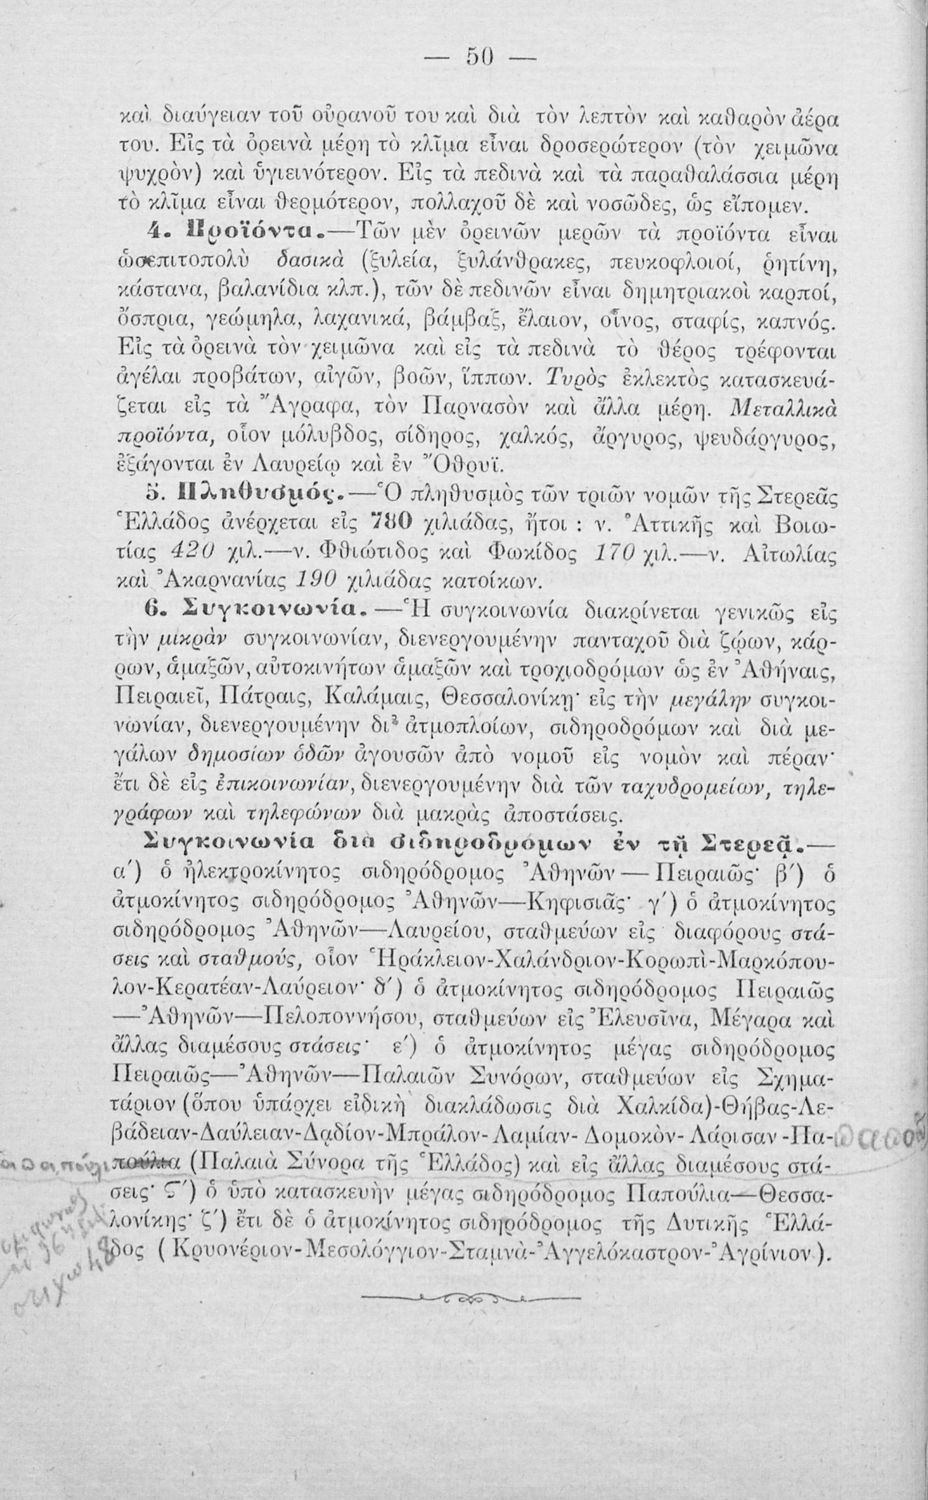 — 50 —
καὶ διαύγειαν τοῦ οὐρανοῦ του καὶ διὰ τὸν λεπτὸν καὶ καθαρὸν ἀέρα
του. Εἰς τὰ ὀρεινὰ μέρη τὸ κλῖμα εἶναι δροσερώτερον (τὸν χειμῶνα
ψυχρὸν) καὶ ὑγιεινότερον. Εἰς τὰ πεδινὰ καὶ τὰ παραθαλάσσια μέρη
τὸ κλῖμα εἶναι θερμότερον, πολλαχοῦ δὲ καὶ νοσῶδες, ὡς εἴπομεν.
4. Προϊόντα.—Τῶν μὲν ὀρεινῶν μερῶν τὰ προϊόντα εἶναι
ὡσεπιτοπολὺ δασικὰ (ξυλεία, ξυλάνθρακες, πευκοφλοιοί, ῥητίνη,
κάστανα, βαλανίδια κλπ.), τῶν δὲ πεδινῶν εἶναι δημητριακοὶ καρποί,
ὄσπρια, γεώμηλα, λαχανικά, βάμβαξ, ἔλαιον, οἶνος, σταφίς, καπνός.
Εἰς τὰ ὀρεινὰ τὸν χειμῶνα καὶ εἰς τὰ πεδινὰ τὸ θέρος τρέφονται
ἀγέλαι προβάτων, αἰγῶν, βοῶν, ἵππων. Τυρὸς ἐκλεκτὸς κατασκευά-
ζεται εἰς τὰ Ἄγραφα, τὸν Παρνασὸν καὶ ἄλλα μέρη. Μεταλλικὰ
προϊόντα, οἷον μόλυβδος, σίδηρος, χαλκός, ἄργυρος, ψευδάργυρος,
ἐξάγονται ἐν Λαυρείῳ καὶ ἐν Ὄθρυϊ.
5. Πληθυσμός.—Ὁ πληθυσμὸς τῶν τριῶν νομῶν τῆς Στερεᾶς
Ἑλλάδος ἀνέρχεται εἰς 780 χιλιάδας, ἤτοι : ν. Ἀττικῆς καὶ Βοιω-
τίας 420 χιλ.—ν. Φθιώτιδος καὶ Φωκίδος 170 χιλ.—ν. Αἰτωλίας
καὶ Ἀκαρνανίας 190 χιλιάδας κατοίκων.
6. Συγκοινωνία.—Ἡ συγκοινωνία διακρίνεται γενικῶς εἰς
τὴν μικρὰν συγκοινωνίαν, διενεργουμένην πανταχοῦ διὰ ζῴων, κάρ-
ρων, ἁμαξῶν, αὐτοκινήτων ἁμαξῶν καὶ τροχιοδρόμων ὡς ἐν Ἀθήναις,
Πειραιεῖ, Πάτραις, Καλάμαις, Θεσσαλονίκῃ· εἰς τὴν μεγάλην συγκοι-
νωνίαν, διενεργουμένην δι' ἀτμοπλοίων, σιδηροδρόμων καὶ διὰ με-
γάλων δημοσίων ὁδῶν ἀγουσῶν ἀπὸ νομοῦ εἰς νομὸν καὶ πέραν·
ἔτι δὲ εἰς ἐπικοινωνίαν, διενεργουμένην διὰ τῶν ταχυδρομείων, τηλε-
γράφων καὶ τηλεφώνων διὰ μακρὰς ἀποστάσεις.
Συγκοινωνία διὰ σιδηροδρόμων ἐν τῇ Στερεᾷ.—
α΄) ὁ ἠλεκτροκίνητος σιδηρόδρομος Ἀθηνῶν — Πειραιῶς· β΄) ὁ
ἀτμοκίνητος σιδηρόδρομος Ἀθηνῶν—Κηφισιᾶς· γ΄) ὁ ἀτμοκίνητος
σιδηρόδρομος Ἀθηνῶν—Λαυρείου, σταθμεύων εἰς διαφόρους στά-
σεις καὶ σταθμούς, οἷον Ἡράκλειον-Χαλάνδριον-Κορωπὶ-Μαρκόπου-
λον-Κερατέαν-Λαύρειον· δ΄) ὁ ἀτμοκίνητος σιδηρόδρομος Πειραιῶς
—Ἀθηνῶν—Πελοποννήσου, σταθμεύων εἰς Ἐλευσῖνα, Μέγαρα καὶ
ἄλλας διαμέσους στάσεις· ε΄) ὁ ἀτμοκίνητος μέγας σιδηρόδρομος
Πειραιῶς—Ἀθηνῶν—Παλαιῶν Συνόρων, σταθμεύων εἰς Σχημα-
τάριον (ὅπου ὑπάρχει εἰδικὴ διακλάδωσις διὰ Χαλκίδα)-Θήβας-Λε-
βάδειαν-Δαύλειαν-Δαδίον-Μπράλον-Λαμίαν-Δομοκὸν-Λάρισαν-Πα-
πούλια (Παλαιὰ Σύνορα τῆς Ἑλλάδος) καὶ εἰς ἄλλας διαμέσους στά-
σεις· Ϛ΄) ὁ ὑπὸ κατασκευὴν μέγας σιδηρόδρομος Παπούλια—Θεσσα-
λονίκης· ζ΄) ἔτι δὲ ὁ ἀτμοκίνητος σιδηρόδρομος τῆς Δυτικῆς Ἑλλά-
δος (Κρυονέριον-Μεσολόγγιον-Σταμνὰ-Ἀγγελόκαστρον-Ἀγρίνιον).